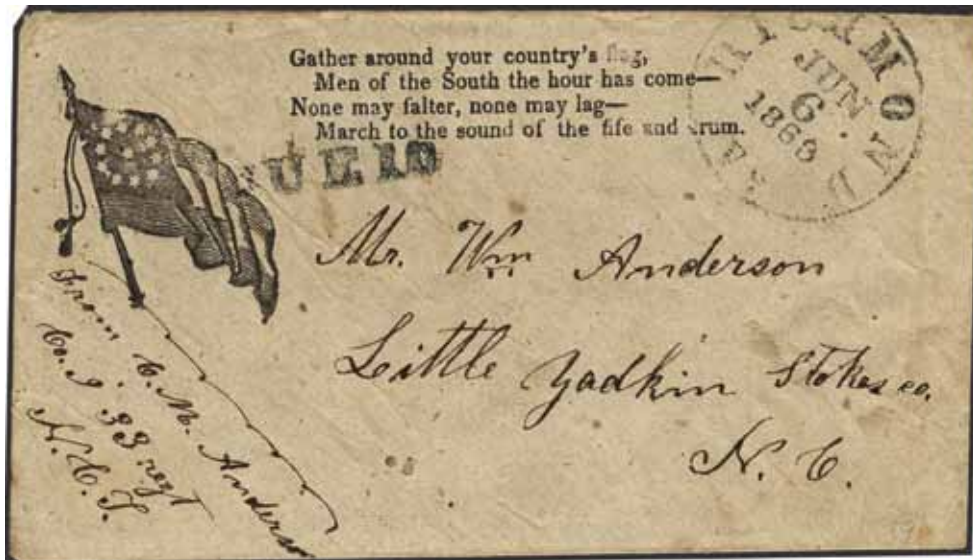 Gather around your country's flag,
Men of the South the hour has come—
None may falter, none may lag—
March to the sound of the fife and drum.
RICHMOND VA.
JUN
6
1863
DUE 10
Mr. Wm Anderson
Little Yadkin Stokes co.
N. C.
From C. M. Anderson
Co. I. 33 regt
N. C. T.